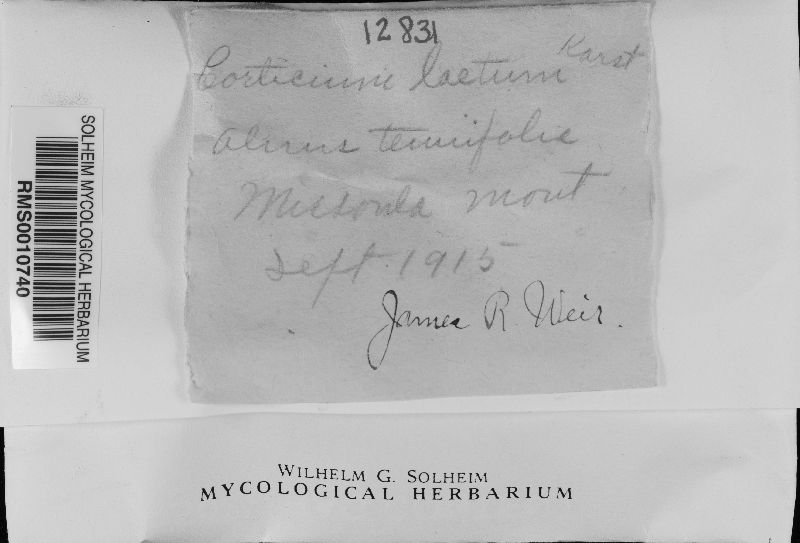 12831
Corticium laetum Karst
Alnus tenuifolia
Missoula Mont
Sept. 1915
James R. Weir.
SOLHEIM MYCOLOGICAL HERBARIUM
RMS0010740
WILHELM G. SOLHEIM
MYCOLOGICAL HERBARIUM